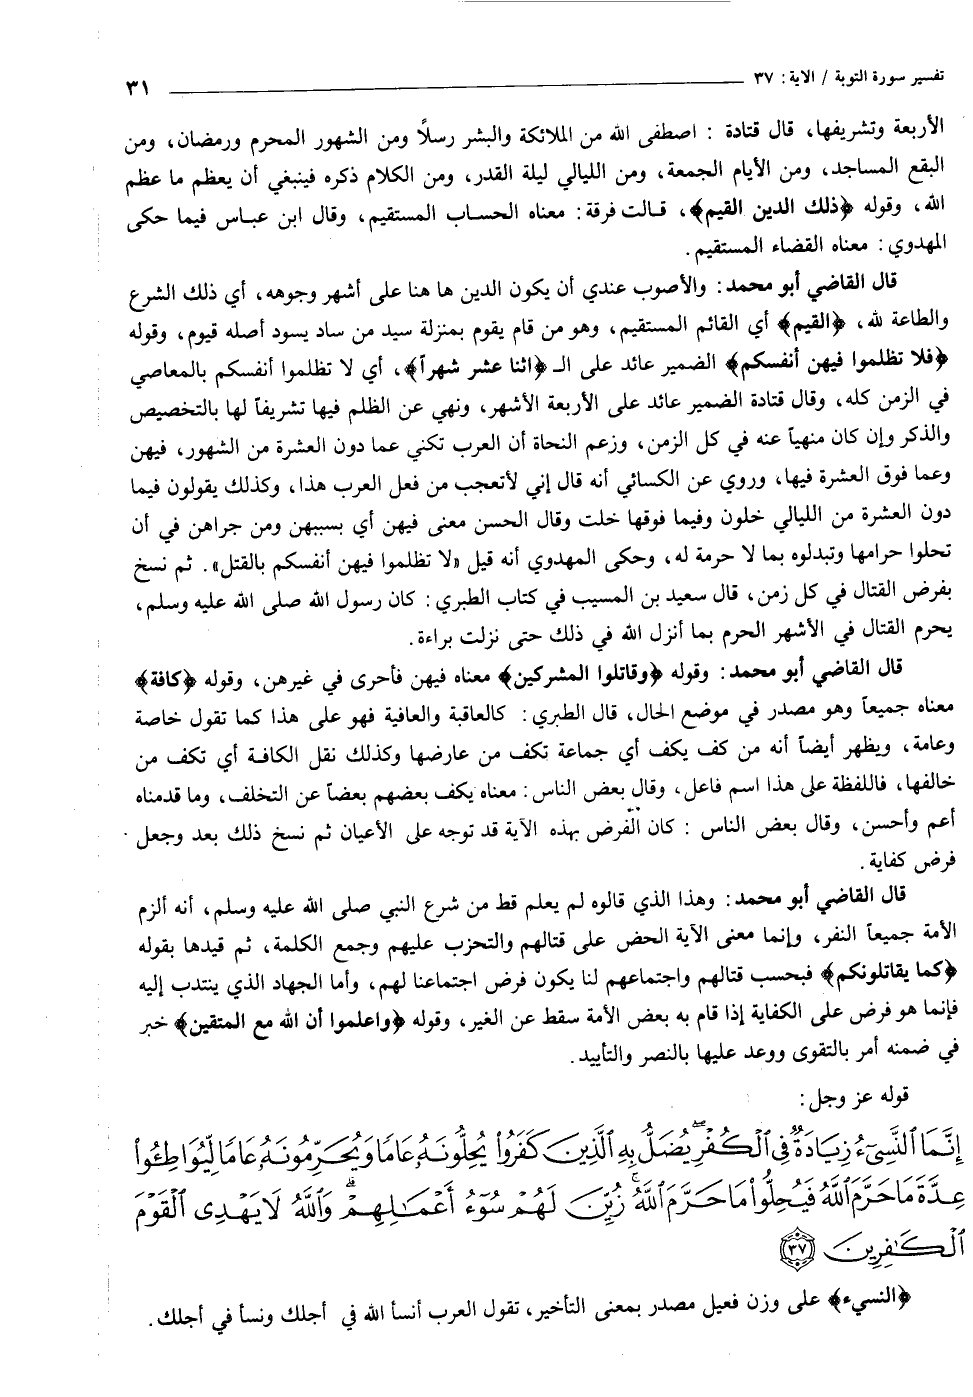 تفسير سورة التوبة / الآية: ٣٧
٣١
الأربعة وتشريفها، قال قتادة : اصطفى الله من الملائكة والبشر رسلاً ومن الشهور المحرم ورمضان، ومن
البقع المساجد، ومن الأيام الجمعة، ومن الليالي ليلة القدر، ومن الكلام ذكره فينبغي أن يعظم ما عظم
الله، وقوله ﴿ذلك الدين القيم﴾، قالت فرقة: معناه الحساب المستقيم، وقال ابن عباس فيما حكى
المهدوي: معناه القضاء المستقيم.
قال القاضي أبو محمد: والأصوب عندي أن يكون الدين ها هنا على أشهر وجوهه، أي ذلك الشرع
والطاعة لله، ﴿القيم﴾ أي القائم المستقيم، وهو من قام يقوم بمنزلة سيد من ساد يسود أصله قيوم، وقوله
﴿فلا تظلموا فيهن أنفسكم﴾ الضمير عائد على الـ ﴿اثنا عشر شهراً﴾، أي لا تظلموا أنفسكم بالمعاصي
في الزمن كله، وقال قتادة الضمير عائد على الأربعة الأشهر، ونهي عن الظلم فيها تشريفاً لها بالتخصيص
والذكر وإن كان منهياً عنه في كل الزمن، وزعم النحاة أن العرب تكني عما دون العشرة من الشهور، فيهن
وعما فوق العشرة فيها، وروي عن الكسائي أنه قال إني لأتعجب من فعل العرب هذا، وكذلك يقولون فيما
دون العشرة من الليالي خلون وفيما فوقها خلت وقال الحسن معنى فيهن أي بسببهن ومن جراهن في أن
تحلوا حرامها وتبدلوه بما لا حرمة له، وحكى المهدوي أنه قيل «لا تظلموا فيهن أنفسكم بالقتل». ثم نسخ
بفرض القتال في كل زمن، قال سعيد بن المسيب في كتاب الطبري: كان رسول الله صلى الله عليه وسلم،
يحرم القتال في الأشهر الحرم بما أنزل الله في ذلك حتى نزلت براءة.
قال القاضي أبو محمد: وقوله ﴿وقاتلوا المشركين﴾ معناه فيهن فأحرى في غيرهن، وقوله ﴿كافة﴾
معناه جميعاً وهو مصدر في موضع الحال، قال الطبري: كالعاقبة والعافية فهو على هذا كما تقول خاصة
وعامة، ويظهر أيضاً أنه من كف يكف أي جماعة تكف من عارضها وكذلك نقل الكافة أي تكف من
خالفها، فاللفظة على هذا اسم فاعل، وقال بعض الناس: معناه يكف بعضهم بعضاً عن التخلف، وما قدمناه
أعم وأحسن، وقال بعض الناس : كان الفرض بهذه الآية قد توجه على الأعيان ثم نسخ ذلك بعد وجعل
فرض كفاية.
قال القاضي أبو محمد: وهذا الذي قالوه لم يعلم قط من شرع النبي صلى الله عليه وسلم، أنه ألزم
الأمة جميعاً النفر، وإنما معنى الآية الحض على قتالهم والتحزب عليهم وجمع الكلمة، ثم قيدها بقوله
﴿كما يقاتلونكم﴾ فبحسب قتالهم واجتماعهم لنا يكون فرض اجتماعنا لهم، وأما الجهاد الذي ينتدب إليه
فإنما هو فرض على الكفاية إذا قام به بعض الأمة سقط عن الغير، وقوله ﴿واعلموا أن الله مع المتقين﴾ خبر
في ضمنه أمر بالتقوى ووعد عليها بالنصر والتأييد.
قوله عز وجل:
إِنَّمَا ٱلنَّسِىٓءُ زِيَادَةٌ فِى ٱلْكُفْرِ يُضَلُّ بِهِ ٱلَّذِينَ كَفَرُوا۟ يُحِلُّونَهُۥ عَامًا وَيُحَرِّمُونَهُۥ عَامًا لِّيُوَاطِـُٔوا۟
عِدَّةَ مَا حَرَّمَ ٱللَّهُ فَيُحِلُّوا۟ مَا حَرَّمَ ٱللَّهُ ۚ زُيِّنَ لَهُمْ سُوٓءُ أَعْمَـٰلِهِمْ ۗ وَٱللَّهُ لَا يَهْدِى ٱلْقَوْمَ
ٱلْكَـٰفِرِينَ ٣٧
﴿النسيء﴾ على وزن فعيل مصدر بمعنى التأخير، تقول العرب أنسأ الله في أجلك ونسأ في أجلك.